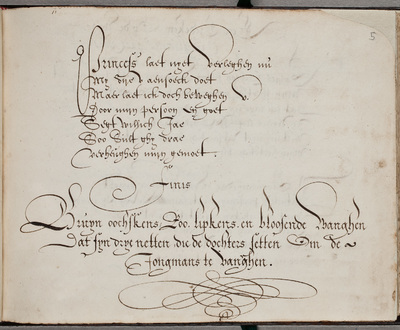 5
Princess laet niet Verleghen mij
Mij die V aensoeck doet
Maer laet ick doch beweghen V
Door mijn persoon en goet
Segt willich Jae
Soo sult ghy drae
Verheughen mijn gemoet.
Finis
Bruyn oochskens, Roo lipkens en bloosende Wanghen
Dat sijn drye netten die de dochters setten Om de
Jongmans te vanghen.